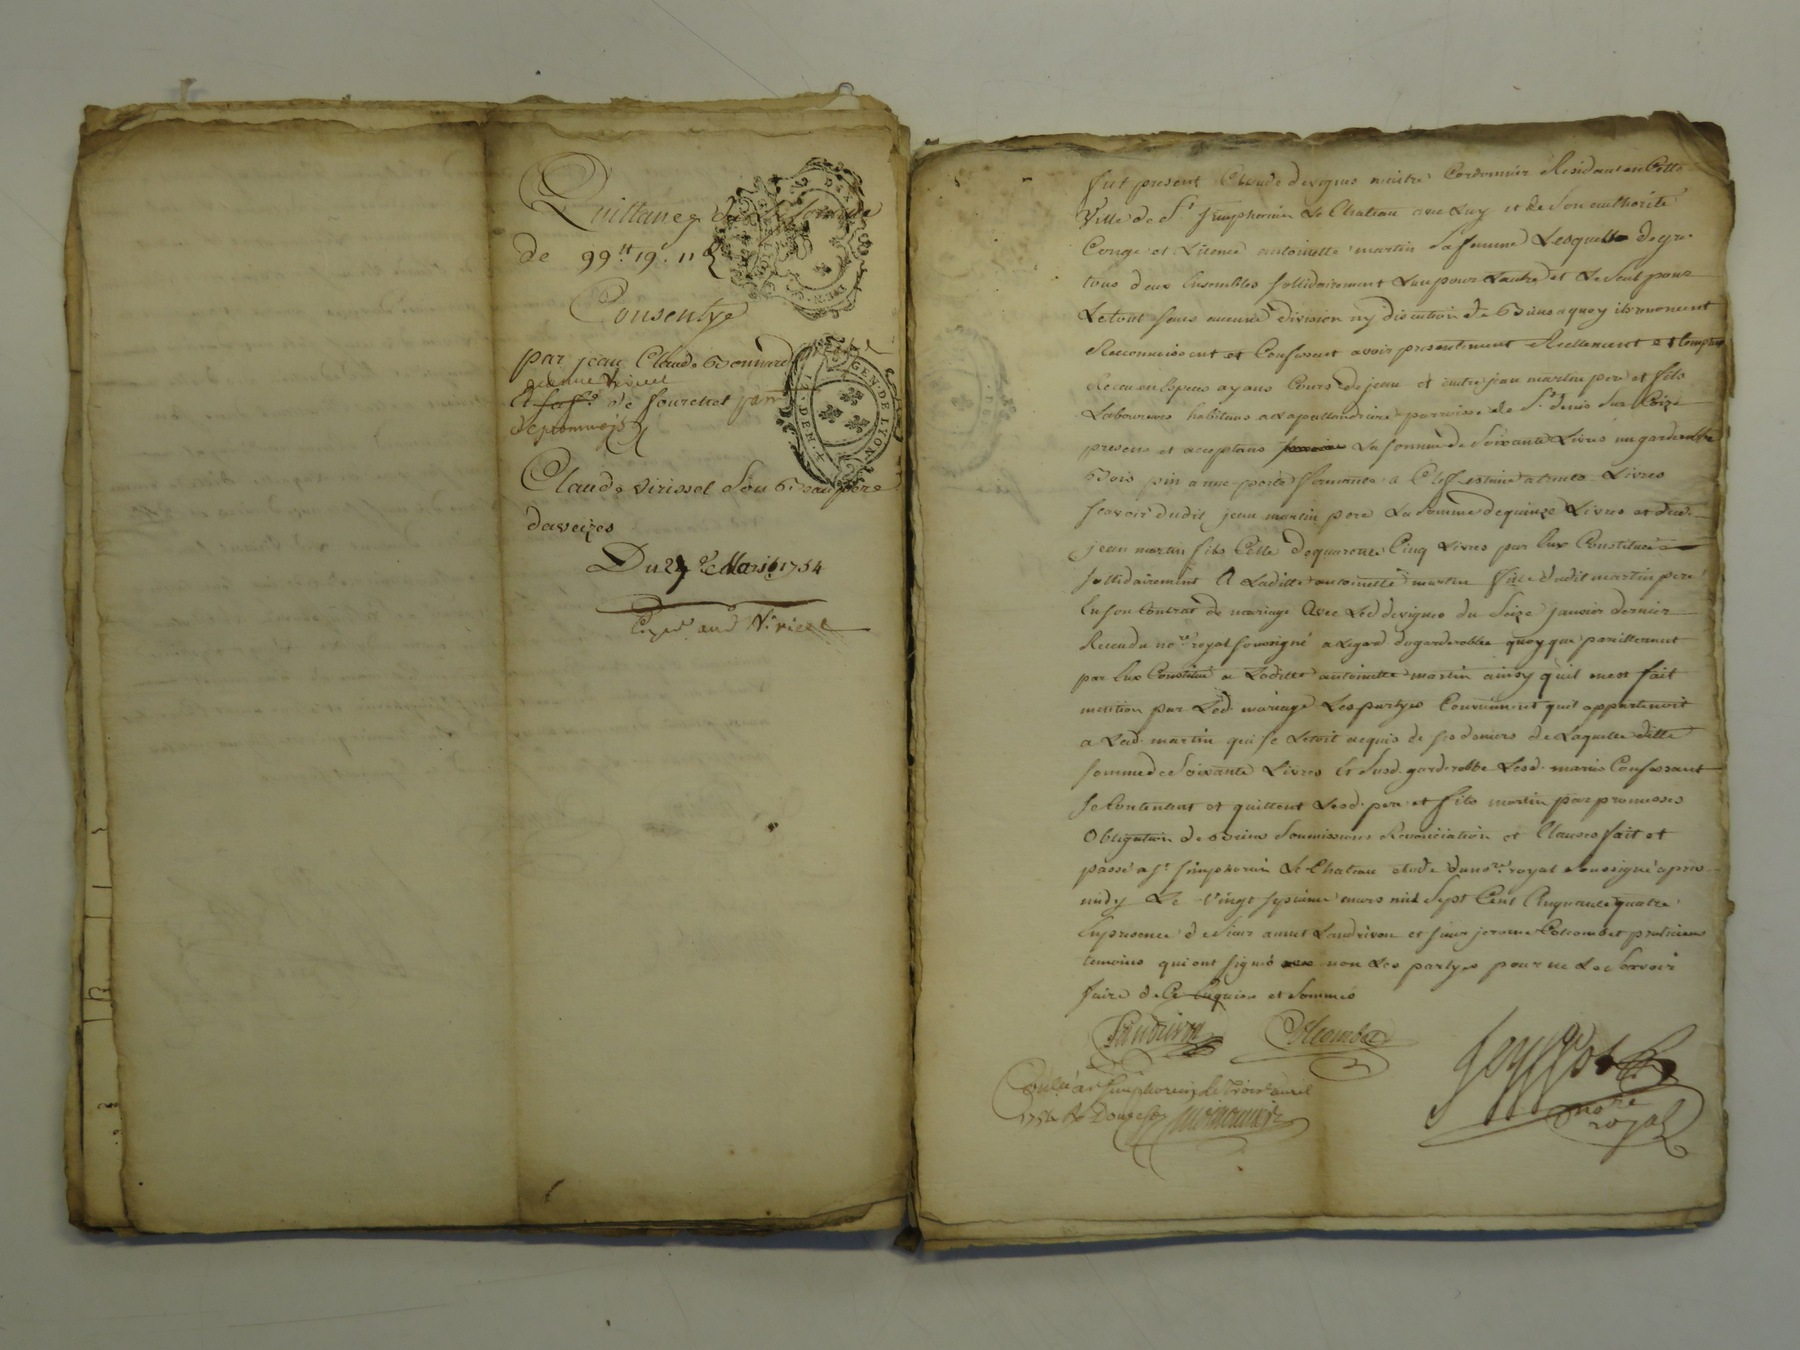 Quittance de la somme
de 99lt 19. 11
Consentye
par jean Claude
de fourettet
Claude virissel Son Beaupere
daveizes
Du 24e Mars 1754
GEN. DE LYON
fut present Claude devignes maitre Cordonnier Residant en Cette
Ville de St simphorien Le Chateau avec Luy et de Son authorité
Congé et Licence antoinette martin Sa femme Lesquels de gre
tous deux Ensembles sollidairement Lun pour Lautre et Le Seul pour
Le tout sans aucune division ny discution de Biens a quoy ils renoncent
Reconnoissent et Confessent avoir presentement Reellement et Comptant
Receu en Espece ayans Cours de jean et autre jean martin pere et fils
Laboureurs habitans parroisse de St denis Sur Coize
presens et aceptans La somme de Soixante Livres un garderobbe
Bois pin a une porte fermante a Clef estimé a trente Livres
scavoir dudit jean martin pere La Somme de quinze Livres et dud.
jean martin fils Celle de quarente Cinq Livres par Eux Constituée
sollidairement a Laditte antoinette martin fille dudit martin pere
En son Contrat de mariage avec Led devignes du Seize janvier dernier
Receu du nore royal soussigné a Legard du garderobbe quoy que pareillement
par Eux Constitué a Laditte antoinette martin ainsy quil en est fait
mention par Led. mariage Les partyes Conviennent quil appartenoit
a Lad. martin qui se Letoit acquis de ses deniers de Laquelle ditte
somme de Soixante Livres et Susd. garderobbe Lesd. mariés Confessant
se Contentent et quittent Lesd. pere et fils martin par promesses
Obligation de Biens Soumissions Renonciation et Clauses fait et
passé a St simphorien Le Chateau etude du nore royal soussigné apres
midy Le Vingt septieme mars mil Sept Cent Cinquante quatre
En presence de Sieur Landrivon et sieur jerome Colcombet praticiens
temoins qui ont signé non Les partyes pour ne Le Scavoir
faire de Ce Enquises et Sommés
Landrivon Colcombet
Conlé a St simphorien le trois avril
1754 R. Douze sols
nore
royal